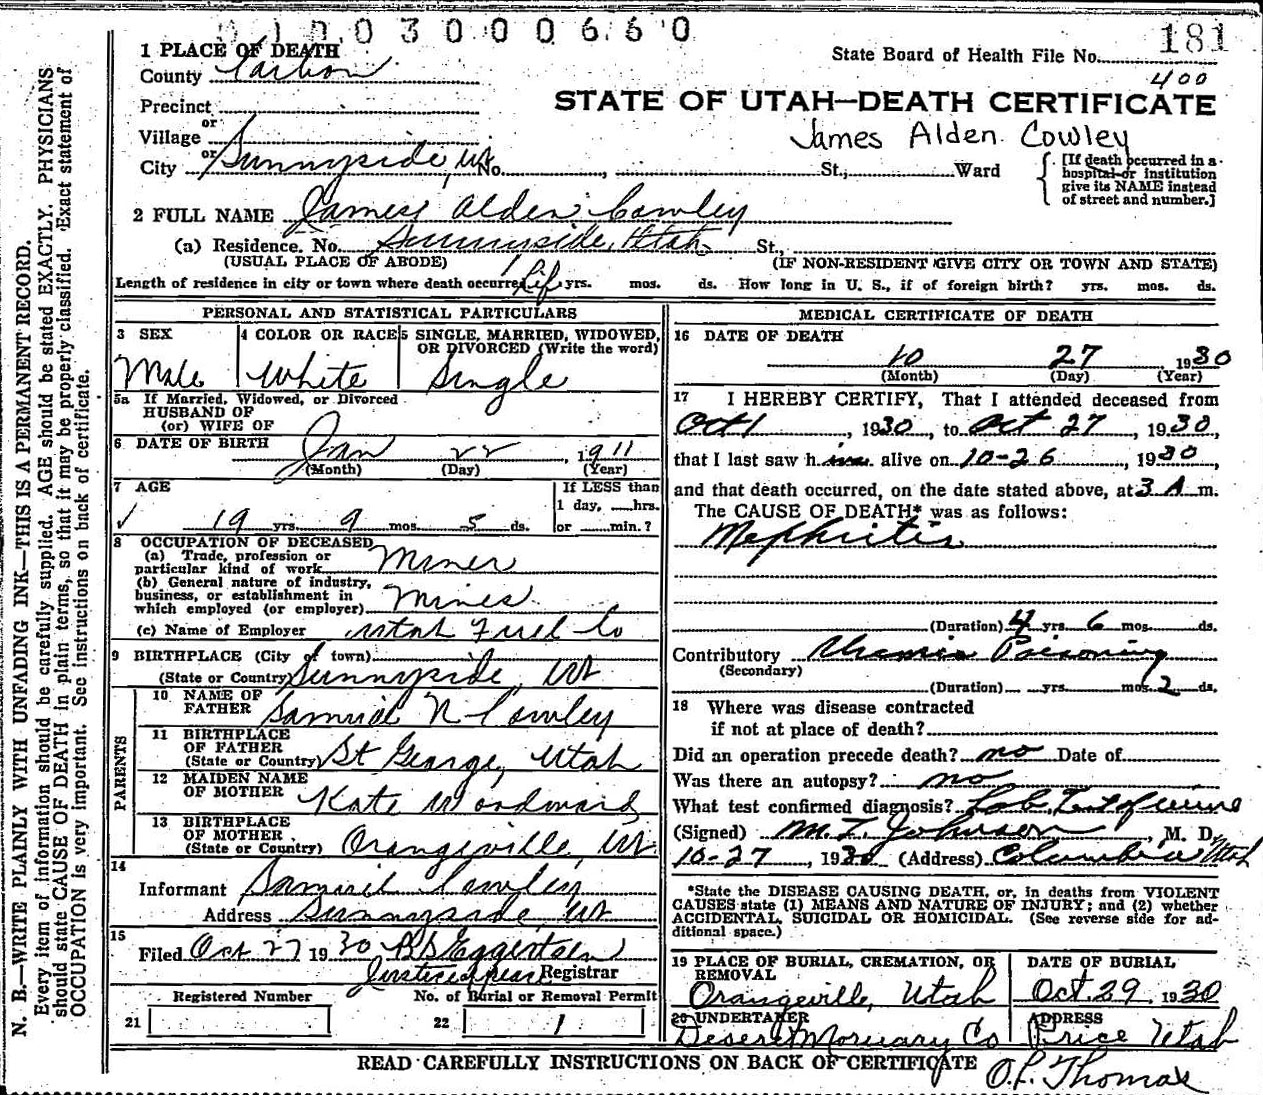 0 1 0 0 3 0 0 0 6 6 0
181
State Board of Health File No.
400
1 PLACE OF DEATH
County Carbon
STATE OF UTAH—DEATH CERTIFICATE
Precinct
or
Village
James Alden Cowley
or
City Sunnyside, Ut No. , St., Ward
[If death occurred in a hospital or institution give its NAME instead of street and number.]
2 FULL NAME James Alden Cowley
(a) Residence. No. Sunnyside, Utah St.
(USUAL PLACE OF ABODE) (IF NON-RESIDENT GIVE CITY OR TOWN AND STATE)
Length of residence in city or town where death occurred Life yrs. mos. ds. How long in U. S., if of foreign birth? yrs. mos. ds.
PERSONAL AND STATISTICAL PARTICULARS
3 SEX
Male
4 COLOR OR RACE
White
5 SINGLE, MARRIED, WIDOWED, OR DIVORCED (Write the word)
Single
5a If Married, Widowed, or Divorced
HUSBAND OF
(or) WIFE OF
6 DATE OF BIRTH Jan 22, 1911
(Month) (Day) (Year)
7 AGE
If LESS than
1 day, hrs.
19 yrs. 9 mos. 5 ds. or min.?
8 OCCUPATION OF DECEASED
(a) Trade, profession or
particular kind of work Miner
(b) General nature of industry,
business, or establishment in
which employed (or employer) Mines
(c) Name of Employer Utah Fuel Co
9 BIRTHPLACE (City or town)
(State or Country) Sunnyside, Ut
PARENTS
10 NAME OF
FATHER Samuel N Cowley
11 BIRTHPLACE
OF FATHER
(State or Country) St George, Utah
12 MAIDEN NAME
OF MOTHER Kate Woodward
13 BIRTHPLACE
OF MOTHER
(State or Country) Orangeville, Ut
14
Informant Samuel Cowley
Address Sunnyside, Ut
15
Filed Oct 27 1930 B S Eggertsen
Justice of peace Registrar
Registered Number No. of Burial or Removal Permit
21 22 1
MEDICAL CERTIFICATE OF DEATH
16 DATE OF DEATH
10 27 1930
(Month) (Day) (Year)
17 I HEREBY CERTIFY, That I attended deceased from
Oct 1, 1930, to Oct 27, 1930,
that I last saw him alive on 10-26, 1930,
and that death occurred, on the date stated above, at 3 A m.
The CAUSE OF DEATH* was as follows:
Nephritis
(Duration) 4 yrs. 6 mos. ds.
Contributory Uremic Poisoning
(Secondary)
(Duration) yrs. mos. 2 ds.
18 Where was disease contracted
if not at place of death?
Did an operation precede death? no Date of
Was there an autopsy? no
What test confirmed diagnosis? Lab. Test of urine
(Signed) M. T. Johnson, M. D.
10-27, 1930 (Address) Columbia Utah
*State the DISEASE CAUSING DEATH, or, in deaths from VIOLENT
CAUSES state (1) MEANS AND NATURE OF INJURY; and (2) whether
ACCIDENTAL, SUICIDAL OR HOMICIDAL. (See reverse side for additional space.)
19 PLACE OF BURIAL, CREMATION, OR
REMOVAL
Orangeville, Utah
DATE OF BURIAL
Oct. 29 1930
20 UNDERTAKER
Deseret Mortuary Co
ADDRESS
Price Utah
READ CAREFULLY INSTRUCTIONS ON BACK OF CERTIFICATE
O. L. Thomas
N. B.—WRITE PLAINLY WITH UNFADING INK—THIS IS A PERMANENT RECORD.
Every item of information should be carefully supplied. AGE should be stated EXACTLY. PHYSICIANS
should state CAUSE OF DEATH in plain terms, so that it may be properly classified. Exact statement of
OCCUPATION is very important. See instructions on back of certificate.